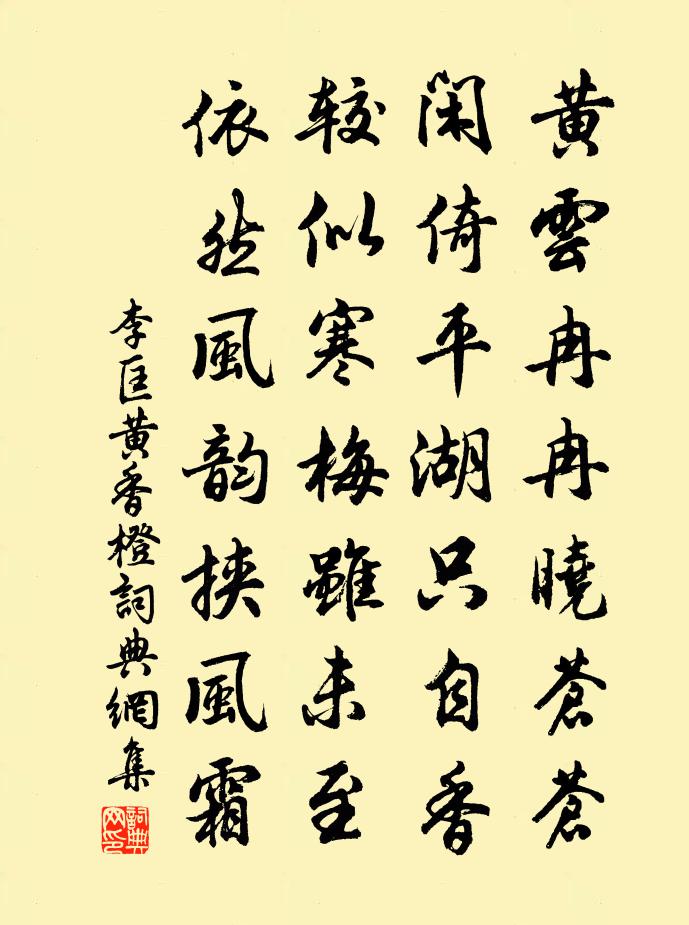 黄雲冉冉曉蒼蒼
閑倚平湖只自香
较似寒梅雖未至
依然風韵挟風霜
李匡黄香橙詞典網集
詞典网印